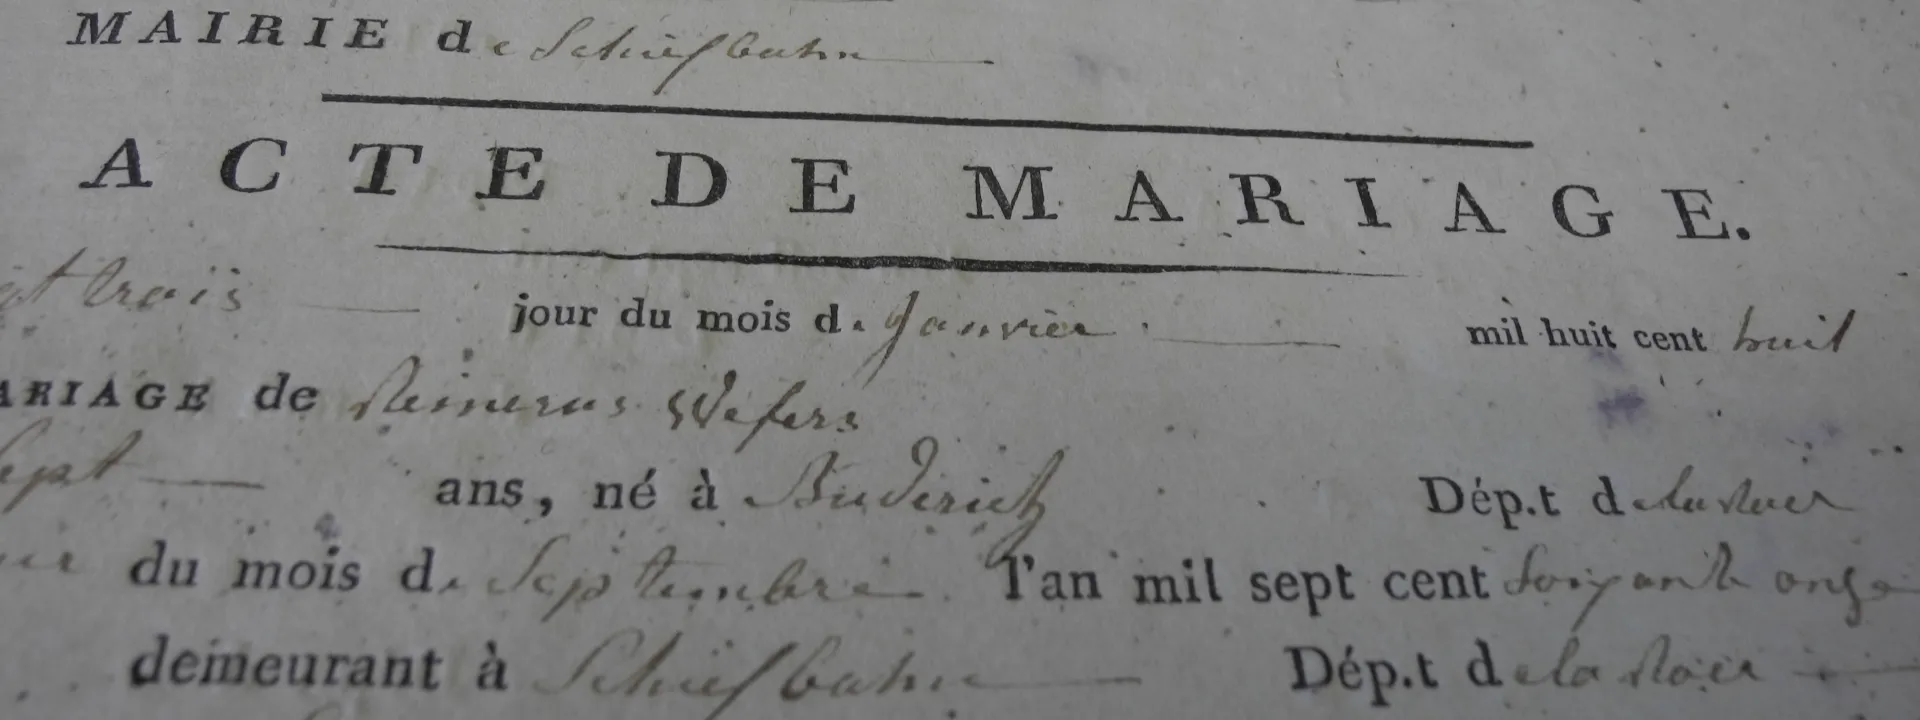 MAIRIE de Schiefbahn
ACTE DE MARIAGE.
trois jour du mois de Janvier mil huit cent huit
ARIAGE de Reinerus Wefers
sept ans, né à Buderich Dép.t de la Roer
du mois de Septembre l'an mil sept cent soixante onze
demeurant à Schiefbahn Dép.t de la Roer